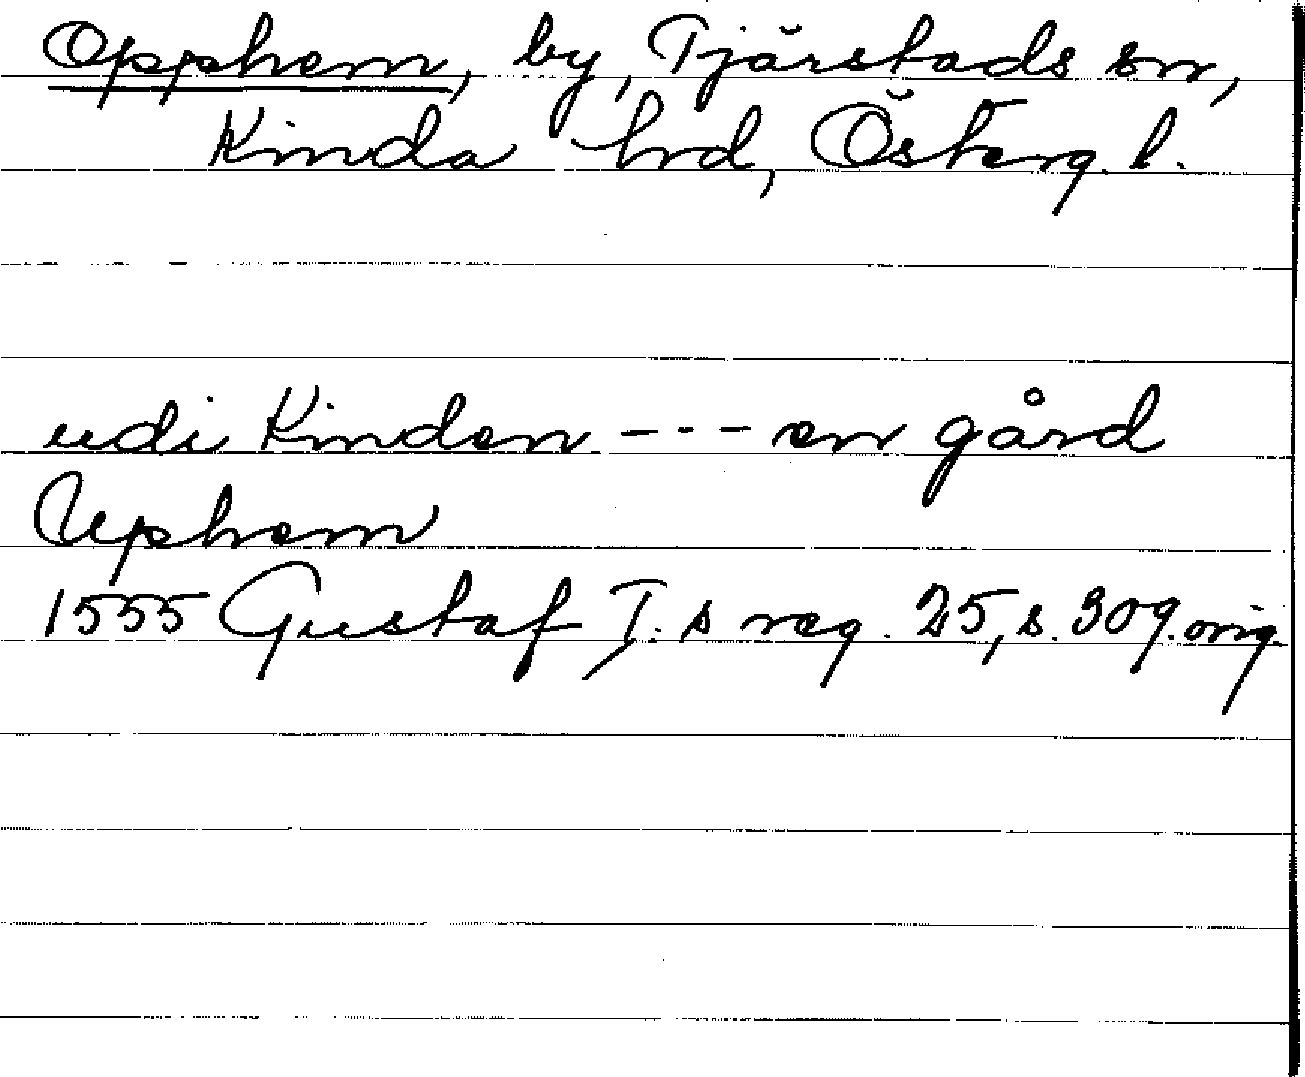 Opphem, by, Tjärstads sn,
Kinda hrd, Österg. l.
udi Kinden --- en gård
Uphem
1555 Gustaf I. s reg. 25, s. 309. orig.